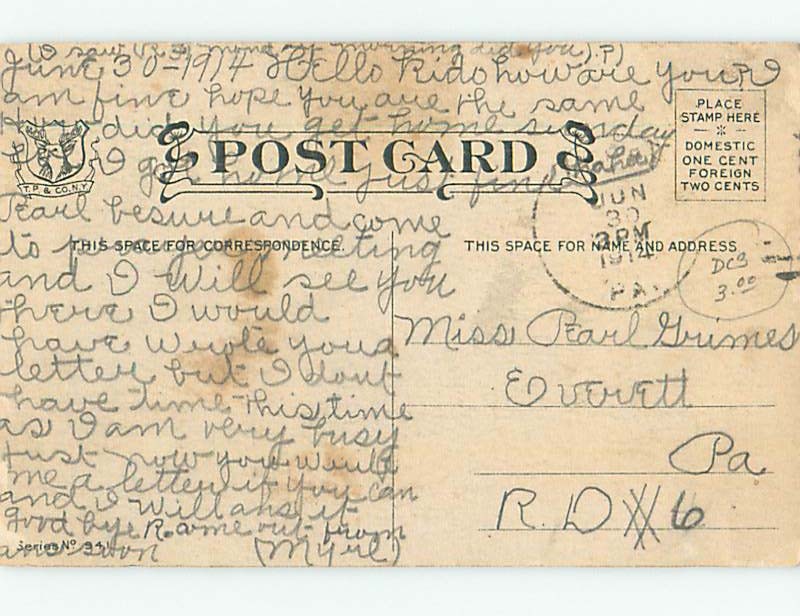 (I saw R. G. Monday morning did you).?)
June 30-1914 Hello Kido how are you? I
am fine hope you are the same
did you get home sunday
I got home just fine
POST CARD
T.P. & CO. N.Y.
PLACE
STAMP HERE
DOMESTIC
ONE CENT
FOREIGN
TWO CENTS
JUN
30
3 PM
1914
PA.
DC9
3.00
Pearl be sure and come
to meeting
THIS SPACE FOR CORRESPONDENCE.
THIS SPACE FOR NAME AND ADDRESS
and I will see you
there I would
have wrote you a
letter but I dont
have time this time
as I am very busy
Just now you write
me a letter if you can
and I will ans it
good bye R. ans
ans soon (Myrl)
Series No 941
Miss Pearl Grimes
Everett
Pa
R. D # 6